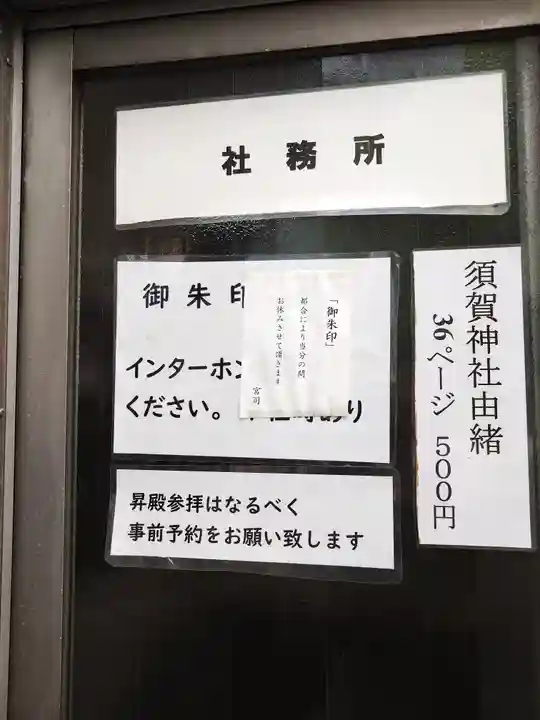 社務所
御朱印
インターホン
ください。
時あり
「御朱印」
都合により当分の間
お休みさせて頂きます
宮司
須賀神社由緒
36ページ 500円
昇殿参拝はなるべく
事前予約をお願い致します